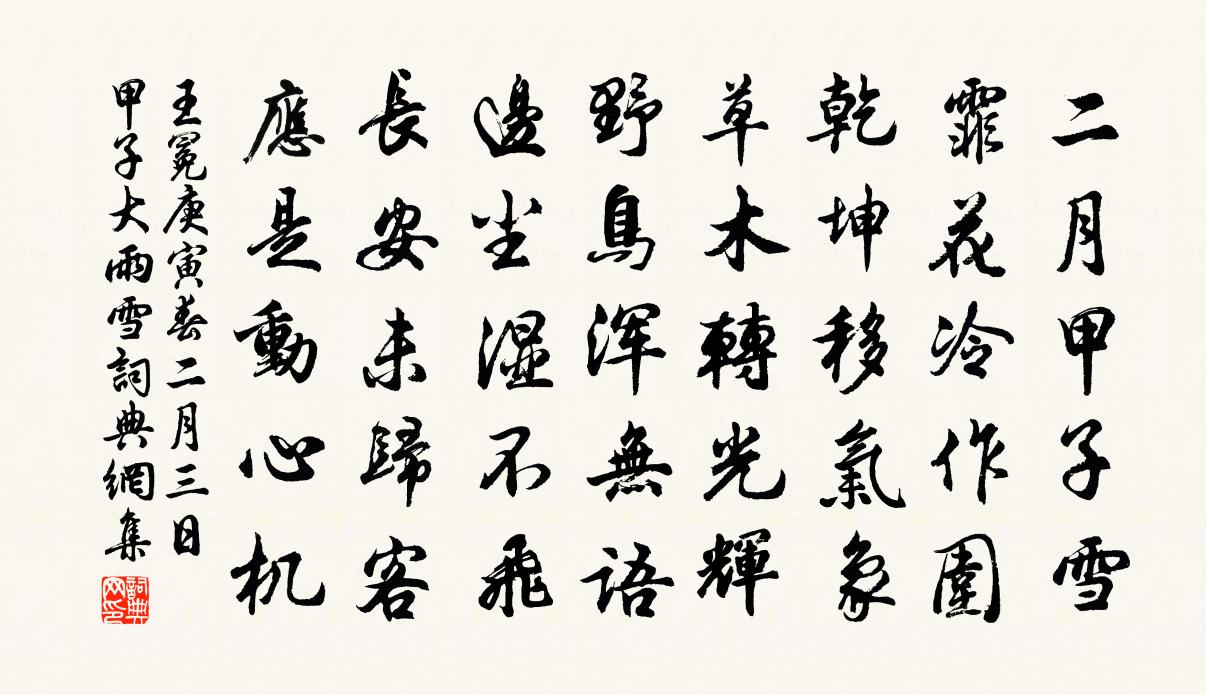 二月甲子雪
霏花冷作圍
乾坤移氣象
草木轉光輝
野鳥浑無語
邊尘濕不飛
長安未歸客
應是動心机
王冕庚寅春二月三日
甲子大雨雪詞典網集
詞典网印